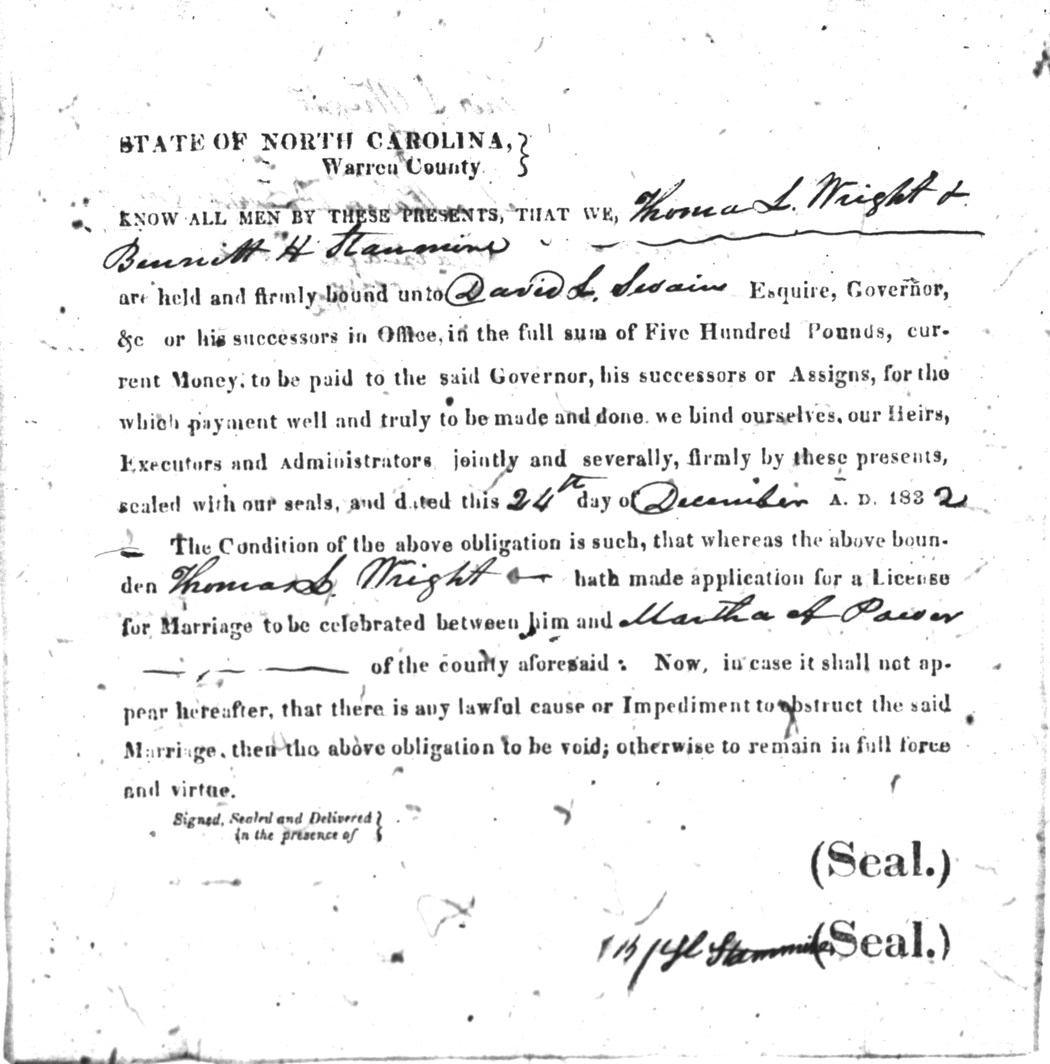 STATE OF NORTH CAROLINA,
Warren County
KNOW ALL MEN BY THESE PRESENTS, THAT WE, Thomas L. Wright &
Bennett H Stammire
are held and firmly bound unto David L. Swain Esquire, Governor,
&c or his successors in Office, in the full sum of Five Hundred Pounds, cur-
rent Money, to be paid to the said Governor, his successors or Assigns, for the
which payment well and truly to be made and done. we bind ourselves, our Heirs,
Executors and Administrators jointly and severally, firmly by these presents,
sealed with our seals, and dated this 24th day of December A. D. 1832
The Condition of the above obligation is such, that whereas the above boun-
den Thomas L. Wright hath made application for a License
for Marriage to be celebrated between him and Martha A
of the county aforesaid : Now, in case it shall not ap-
pear hereafter, that there is any lawful cause or Impediment to obstruct the said
Marriage, then the above obligation to be void; otherwise to remain in full force
and virtue.
Signed, Sealed and Delivered
in the presence of
(Seal.)
(Seal.)